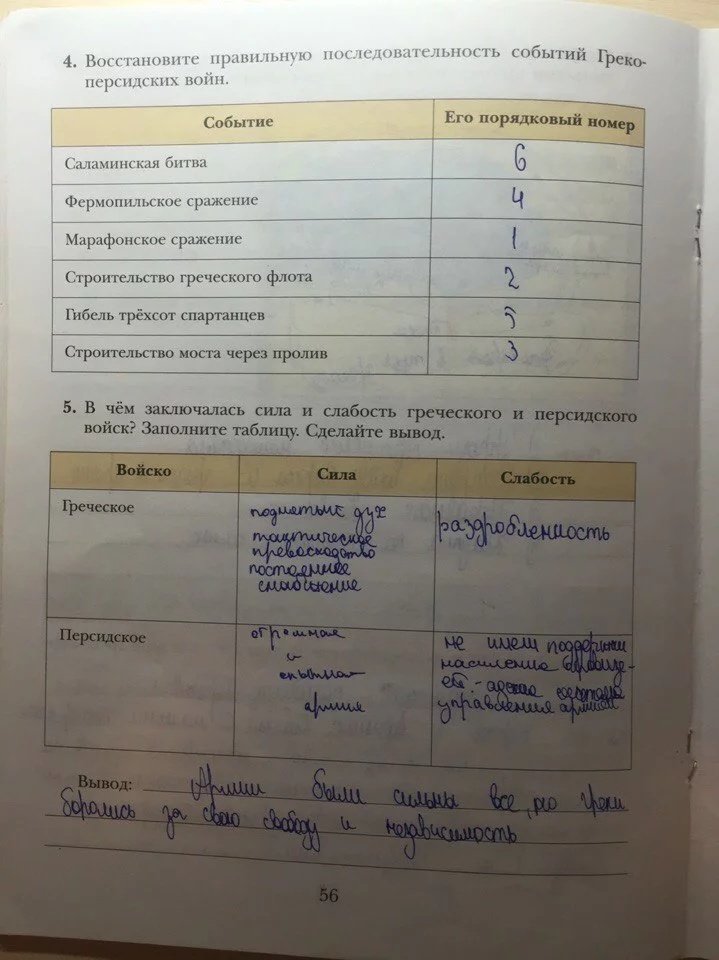 4. Восстановите правильную последовательность событий Греко-
персидских войн.
Событие Его порядковый номер
Саламинская битва 6
Фермопильское сражение 4
Марафонское сражение 1
Строительство греческого флота 2
Гибель трёхсот спартанцев 5
Строительство моста через пролив 3
5. В чём заключалась сила и слабость греческого и персидского
войск? Заполните таблицу. Сделайте вывод.
Войско Сила Слабость
Греческое
дух
тактическое
превосходство
постоянное
снабжение
раздробленность
Персидское
огромная
и
опытная
армия
не имели поддержки
населения
управления армией
Вывод: Армии были сильны все, но греки
боролись за свою свободу и независимость
56